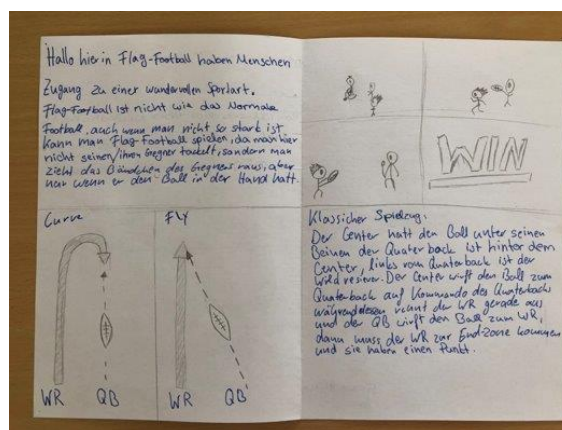 Hallo hier in Flag-Football haben Menschen
Zugang zu einer wundervollen Sportart.
Flag-Football ist nicht wie das Normale
Football, auch wenn man nicht so stark ist
kann man Flag-Football spielen, da man hier
nicht seinen/ihren Gegner takelt, sondern man
zieht das Bändchen des Gegners raus, aber
nur wenn er den Ball in der Hand hatt.
Curve
WR
QB
Fly
WR
QB
WIN
Klassicher Spielzug:
Der Center hatt den Ball unter seinen
Beinen der Quaterback ist hinter dem
Center, links vom Quaterback ist der
Wild resierer. Der Center wirft den Ball zum
Quaterback auf Kommando des Quaterbacks
währenddessen rennt der WR gerade aus
und der QB wirft den Ball zum WR,
dann muss der WR zur End-Zone kommen
und sie haben einen Punkt.